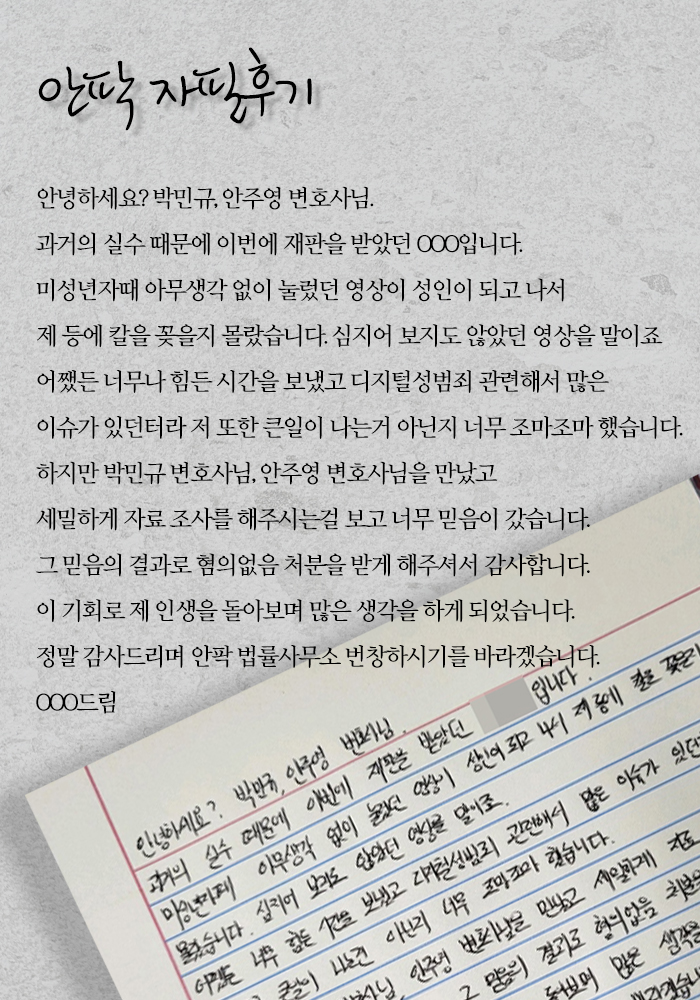 안팍 자필후기
안녕하세요? 박민규, 안주영 변호사님.
과거의 실수 때문에 이번에 재판을 받았던 OOO입니다.
미성년자때 아무생각 없이 눌렀던 영상이 성인이 되고 나서
제 등에 칼을 꽂을지 몰랐습니다. 심지어 보지도 않았던 영상을 말이죠
어쨌든 너무나 힘든 시간을 보냈고 디지털성범죄 관련해서 많은
이슈가 있던터라 저 또한 큰일이 나는거 아닌지 너무 조마조마 했습니다.
하지만 박민규 변호사님, 안주영 변호사님을 만났고
세밀하게 자료 조사를 해주시는걸 보고 너무 믿음이 갔습니다.
그 믿음의 결과로 혐의없음 처분을 받게 해주셔서 감사합니다.
이 기회로 제 인생을 돌아보며 많은 생각을 하게 되었습니다.
정말 감사드리며 안팍 법률사무소 번창하시기를 바라겠습니다.
OOO드림
안녕하세요? 박민규, 안주영 변호사님.
과거의 실수 때문에 이번에 재판을 받았던 입니다.
미성년자때 아무생각 없이 눌렀던 영상이 성인이 되고 나서 제 등에 칼을 꽂을지
몰랐습니다. 심지어 보지도 않았던 영상을 말이죠.
어쨌든 너무 힘든 시간을 보냈고 디지털성범죄 관련해서 많은 이슈가 있던
큰일이 나는건 아닌지 너무 조마조마 했습니다.
안주영 변호사님을 만났고 세밀하게 자료
그 믿음의 결과로 혐의없음 처분
많은 생각을